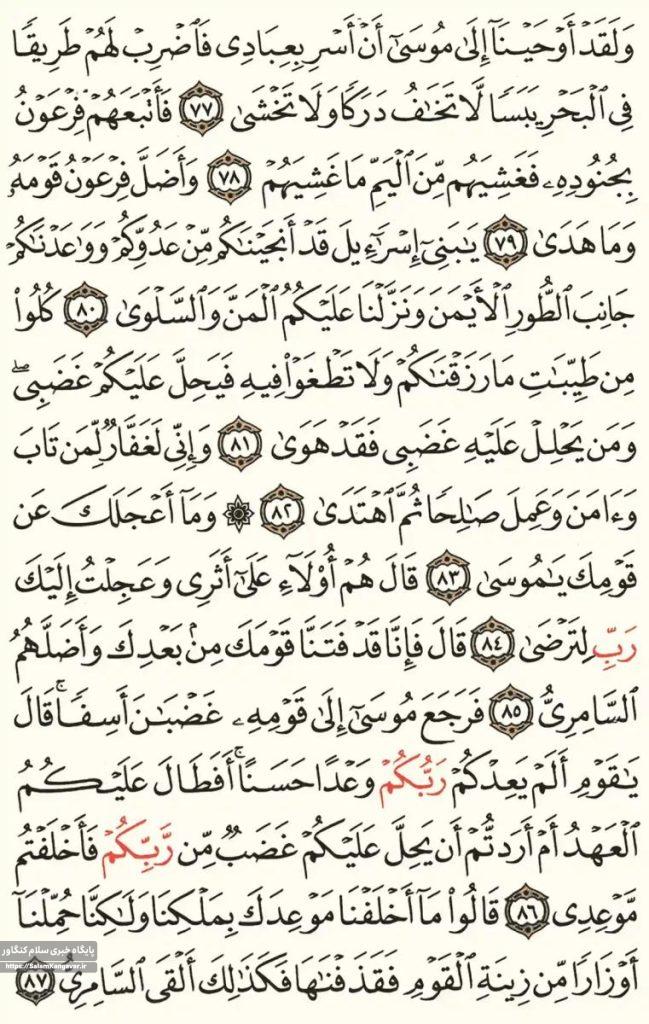 وَلَقَدۡ أَوۡحَيۡنَآ إِلَىٰ مُوسَىٰٓ أَنۡ أَسۡرِ بِعِبَادِي فَٱضۡرِبۡ لَهُمۡ طَرِيقٗا
فِي ٱلۡبَحۡرِ يَبَسٗا لَّا تَخَٰفُ دَرَكٗا وَلَا تَخۡشَىٰ ٧٧ فَأَتۡبَعَهُمۡ فِرۡعَوۡنُ
بِجُنُودِهِۦ فَغَشِيَهُم مِّنَ ٱلۡيَمِّ مَا غَشِيَهُمۡ ٧٨ وَأَضَلَّ فِرۡعَوۡنُ قَوۡمَهُۥ
وَمَا هَدَىٰ ٧٩ يَٰبَنِيٓ إِسۡرَٰٓءِيلَ قَدۡ أَنجَيۡنَٰكُم مِّنۡ عَدُوِّكُمۡ وَوَٰعَدۡنَٰكُمۡ
جَانِبَ ٱلطُّورِ ٱلۡأَيۡمَنَ وَنَزَّلۡنَا عَلَيۡكُمُ ٱلۡمَنَّ وَٱلسَّلۡوَىٰ ٨٠ كُلُواْ
مِن طَيِّبَٰتِ مَا رَزَقۡنَٰكُمۡ وَلَا تَطۡغَوۡاْ فِيهِ فَيَحِلَّ عَلَيۡكُمۡ غَضَبِيۖ
وَمَن يَحۡلِلۡ عَلَيۡهِ غَضَبِي فَقَدۡ هَوَىٰ ٨١ وَإِنِّي لَغَفَّارٞ لِّمَن تَابَ
وَءَامَنَ وَعَمِلَ صَٰلِحٗا ثُمَّ ٱهۡتَدَىٰ ٨٢ ۞ وَمَآ أَعۡجَلَكَ عَن
قَوۡمِكَ يَٰمُوسَىٰ ٨٣ قَالَ هُمۡ أُوْلَآءِ عَلَىٰٓ أَثَرِي وَعَجِلۡتُ إِلَيۡكَ
رَبِّ لِتَرۡضَىٰ ٨٤ قَالَ فَإِنَّا قَدۡ فَتَنَّا قَوۡمَكَ مِنۢ بَعۡدِكَ وَأَضَلَّهُمُ
ٱلسَّامِرِيُّ ٨٥ فَرَجَعَ مُوسَىٰٓ إِلَىٰ قَوۡمِهِۦ غَضۡبَٰنَ أَسِفٗاۚ قَالَ
يَٰقَوۡمِ أَلَمۡ يَعِدۡكُمۡ رَبُّكُمۡ وَعۡدًا حَسَنًاۚ أَفَطَالَ عَلَيۡكُمُ
ٱلۡعَهۡدُ أَمۡ أَرَدتُّمۡ أَن يَحِلَّ عَلَيۡكُمۡ غَضَبٞ مِّن رَّبِّكُمۡ فَأَخۡلَفۡتُم
مَّوۡعِدِي ٨٦ قَالُواْ مَآ أَخۡلَفۡنَا مَوۡعِدَكَ بِمَلۡكِنَا وَلَٰكِنَّا حُمِّلۡنَآ
أَوۡزَارٗا مِّن زِينَةِ ٱلۡقَوۡمِ فَقَذَفۡنَٰهَا فَكَذَٰلِكَ أَلۡقَى ٱلسَّامِرِيُّ ٨٧
پایگاه خبری سلام کنگاور
https://SalamKangavar.ir